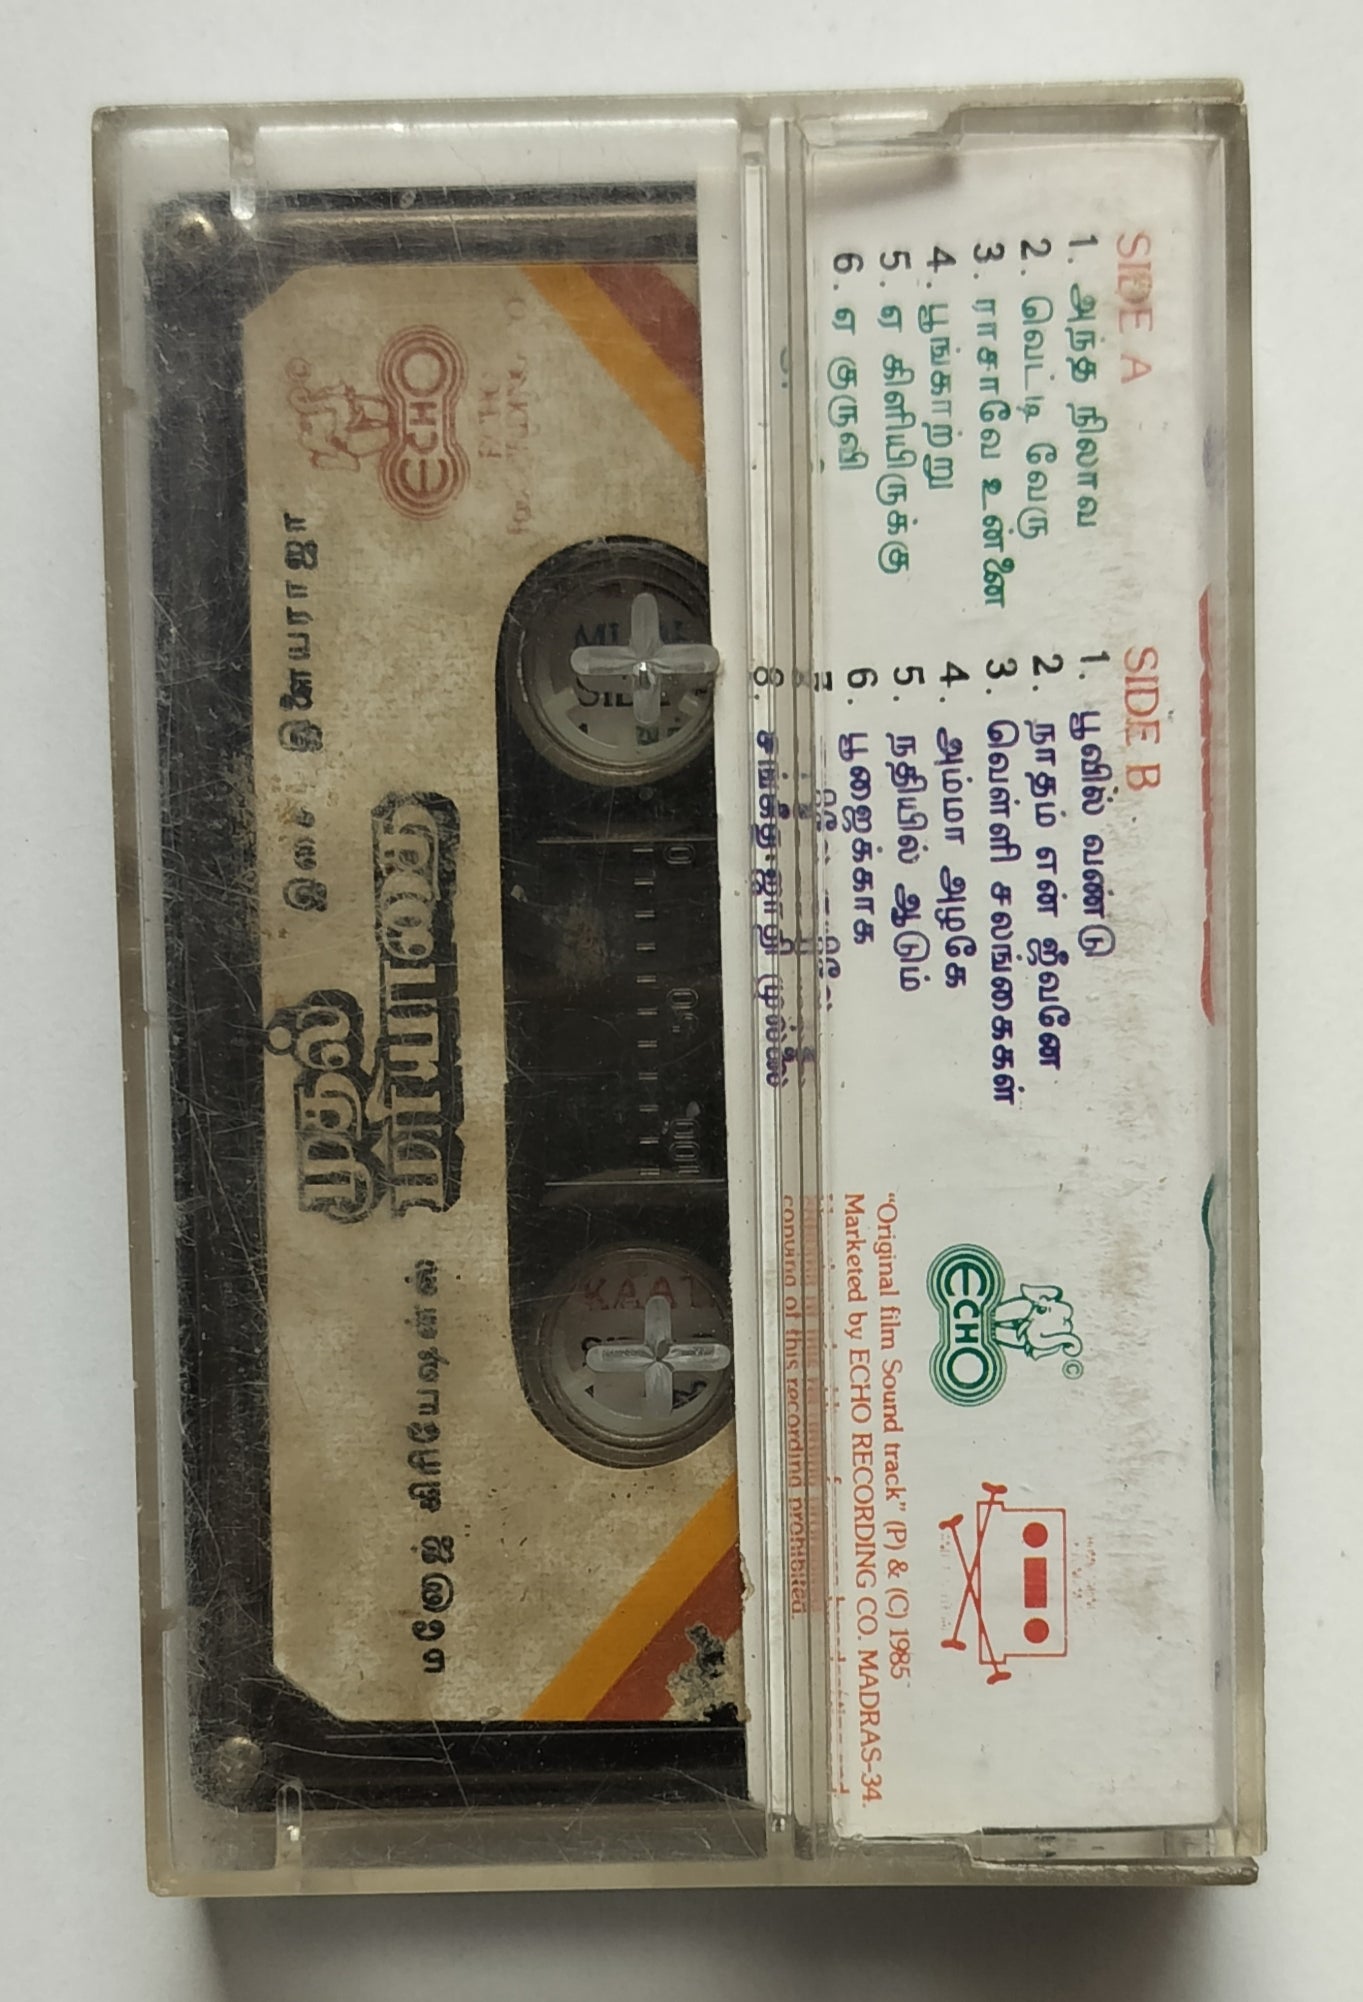 SIDE A
1. அந்த நிலாவ
2. வெட்டி வேரு
3. ராசாவே உன்னை
4. பூங்காற்று
5. ஏ கிளியிருக்கு
6. ஏ குருவி
SIDE B
1. பூவில் வண்டு
2. நாதம் என் ஜீவனே
3. வெள்ளி சலங்கைகள்
4. அம்மா அழகே
5. நதியில் ஆடும்
6. பூஜைக்காக
7.
8. சங்கீத ஜாதி முல்லை
ECHO ©
"Original film Sound track" (P) & (C) 1985
Marketed by ECHO RECORDING CO. MADRAS-34.
copying of this recording prohibited.
0 50 100
SIDE
ECHO
முதல்
மரியாதை
இசை: இளையராஜா